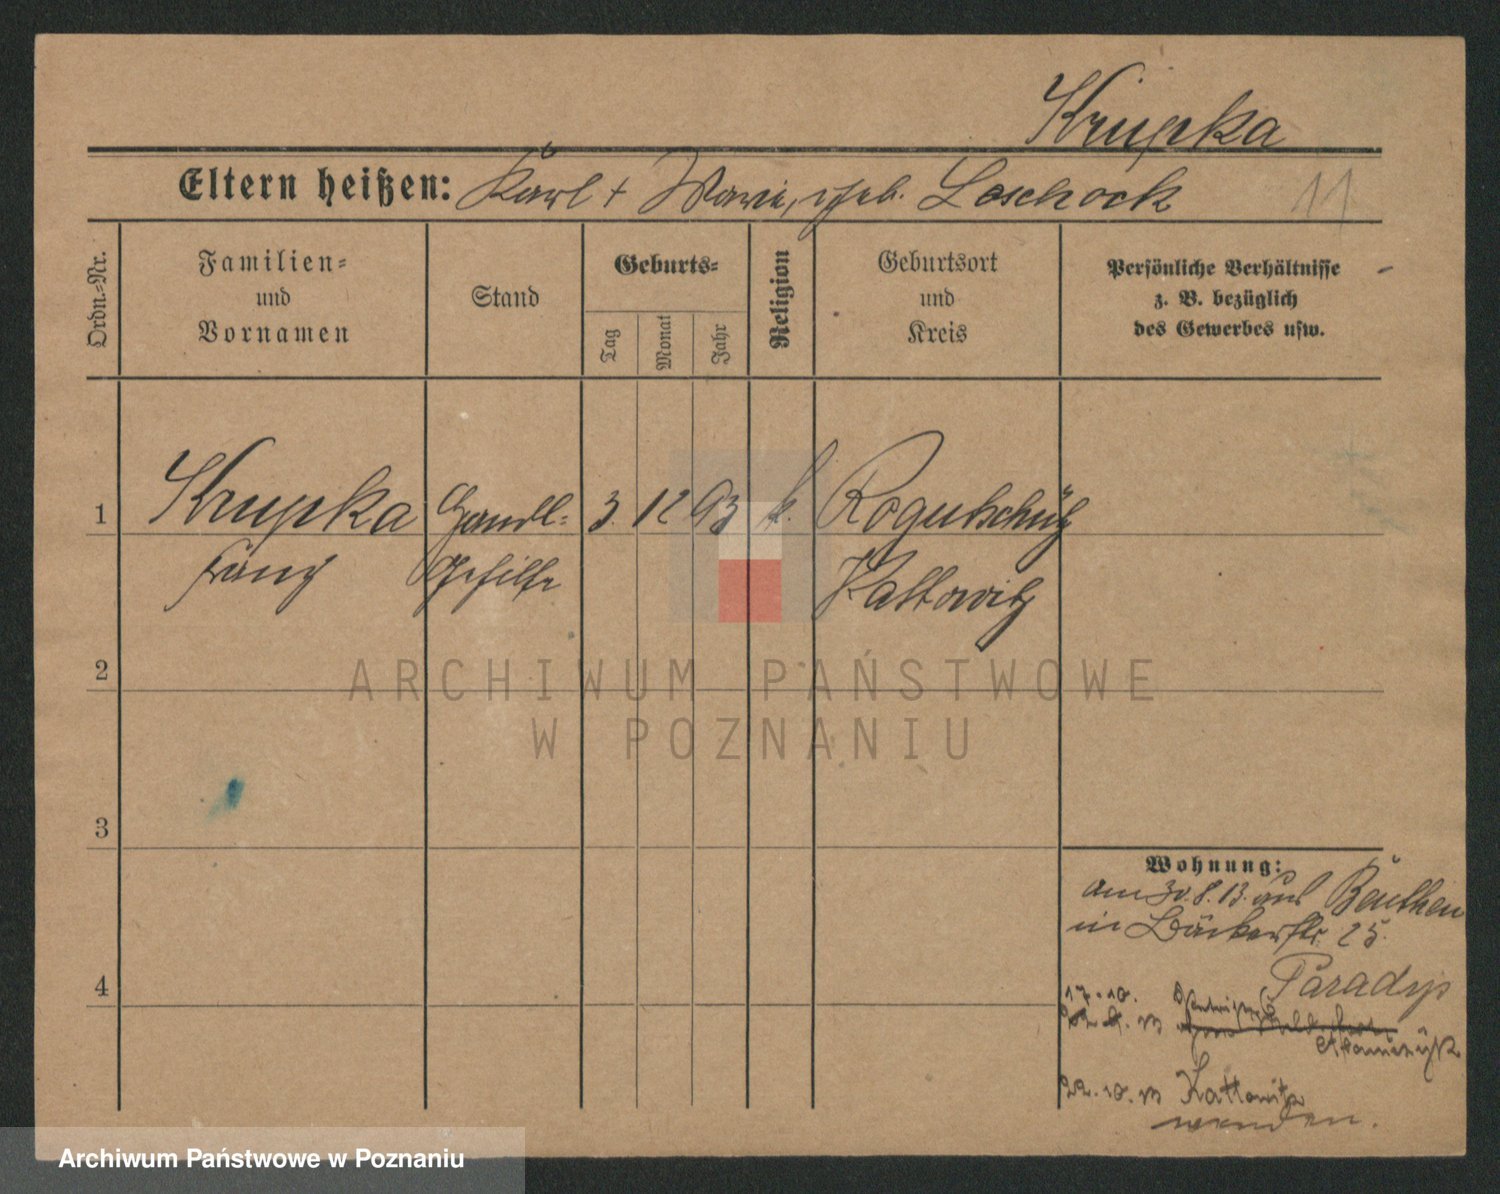 Krupka
Eltern heißen: Karl + Marie, geb. Loschock
11
Ordn.-Nr.
Familien-
und
Vornamen
Stand
Geburts-
Tag
Monat
Jahr
Religion
Geburtsort
und
Kreis
Persönliche Verhältnisse
z. B. bezüglich
des Gewerbes usw.
1
Krupka
Franz
Handl.-
Gehilfe
3. 12 93
k.
Rogutschütz
Kattowitz
2
3
4
Wohnung:
am 30.8.13. aus Beuthen
in Bäckerstr. 25.
Paradys
17.10.
22.10.13 Kattowitz
wenden.
ARCHIWUM PAŃSTWOWE
W POZNANIU
Archiwum Państwowe w Poznaniu